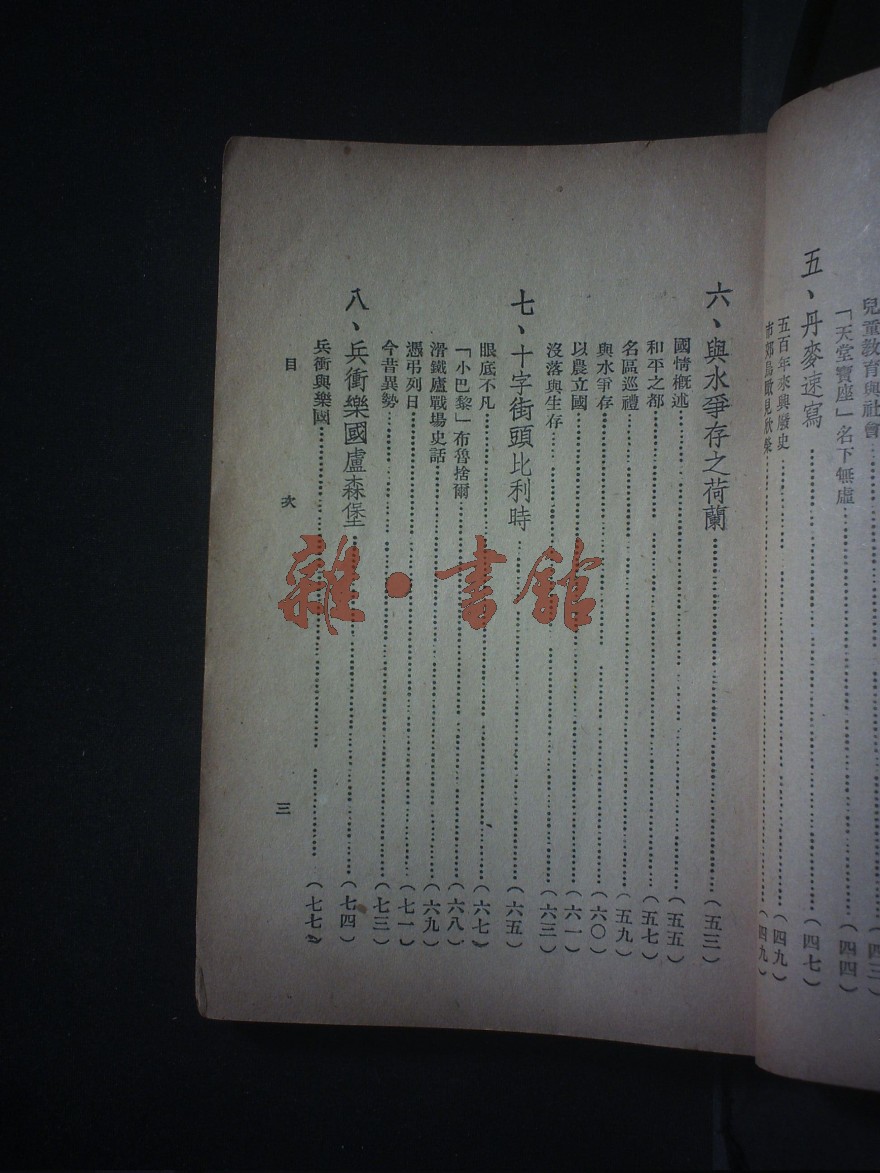 兒童教育與社會……(四三)
「天堂寶座」名下無虛……(四四)
五、丹麥速寫……(四七)
五百年來興廢史……(四九)
市郊鳥瞰見欣榮……(四九)
六、與水爭存之荷蘭……(五三)
國情概述……(五五)
和平之都……(五七)
名區巡禮……(五九)
與水爭存……(六〇)
以農立國……(六一)
沒落與生存……(六三)
七、十字街頭比利時……(六五)
眼底不凡……(六七)
「小巴黎」布魯捨爾……(六八)
滑鐵廬戰場史話……(六九)
憑弔列日……(七一)
今昔異勢……(七三)
八、兵衝樂國盧森堡……(七四)
兵衝與樂國……(七七)
目 次 三
雜·書館